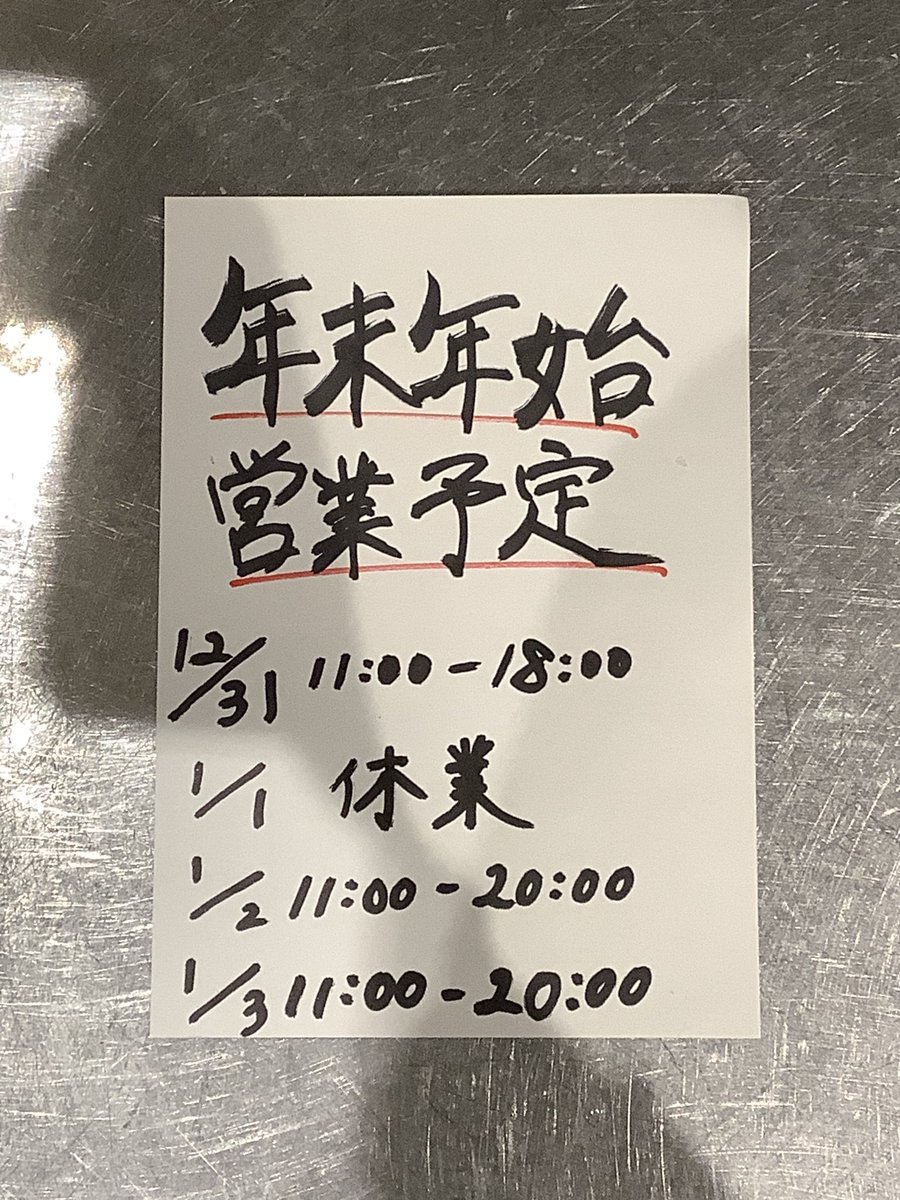 年末年始
営業予定
12/31 11:00-18:00
1/1 休業
1/2 11:00-20:00
1/3 11:00-20:00